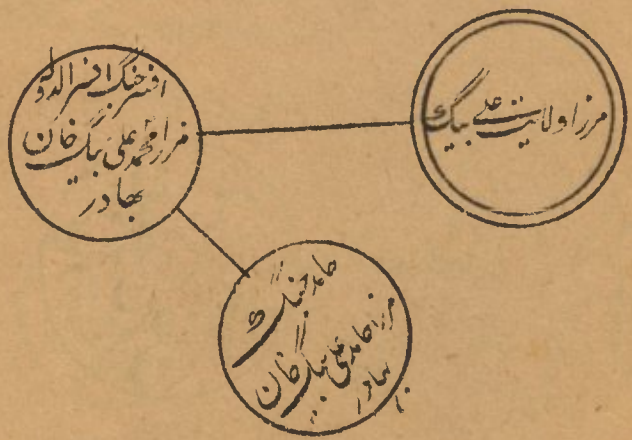 مرزا ولایت علی بیگ
افسر جنگ افسر الدولہ
مرزا محمد علی بیگ خان
بہادر
حامد جنگ
مرزا حامد علی بیگ خان
بہادر